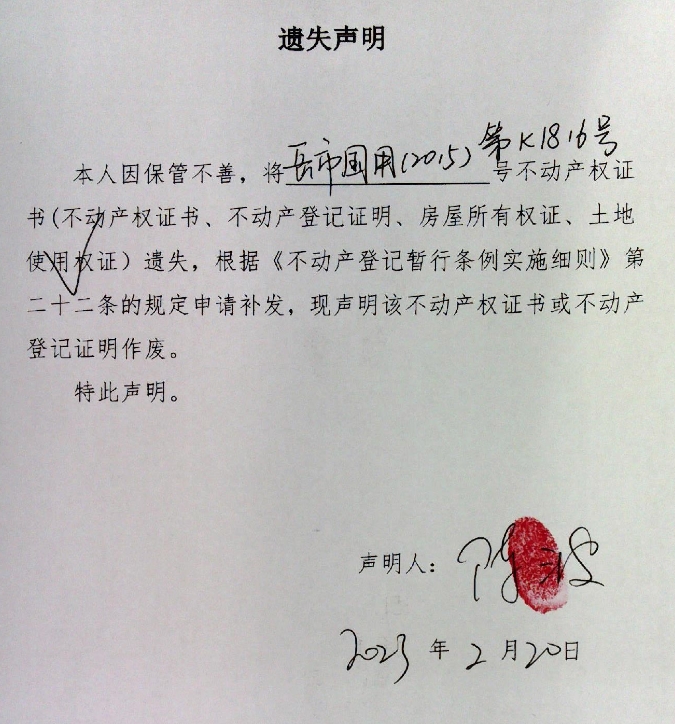 遗失声明
本人因保管不善，将岳市国用(2015)第K1816号号不动产权证
书(不动产权证书、不动产登记证明、房屋所有权证、土地
使用权证）遗失，根据《不动产登记暂行条例实施细则》第
二十二条的规定申请补发，现声明该不动产权证书或不动产
登记证明作废。
特此声明。
声明人：陈波
2023年2月20日